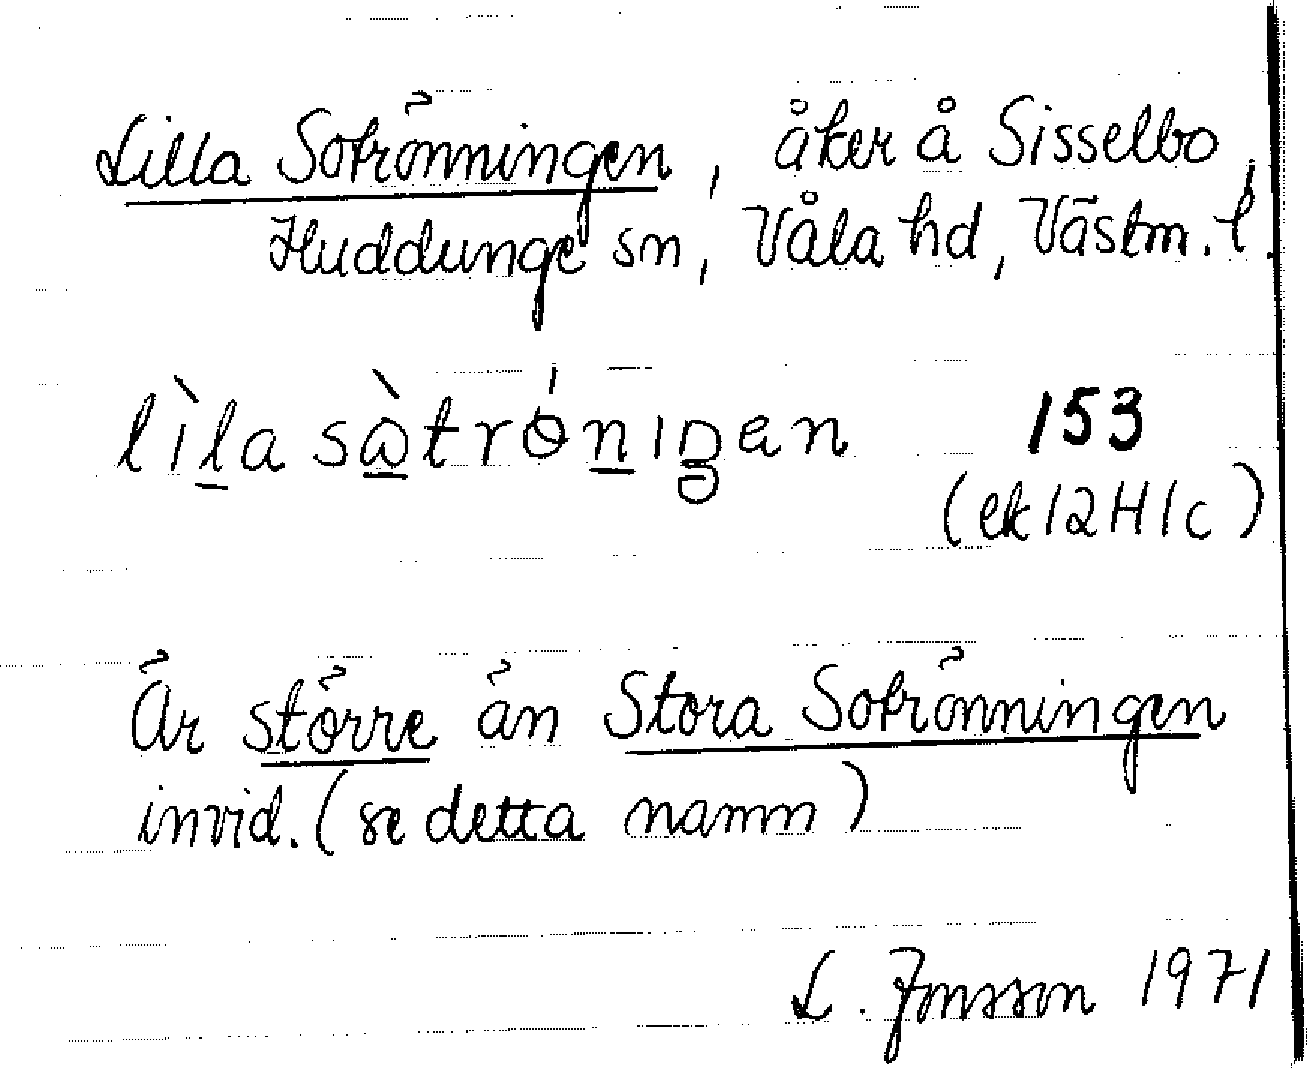 Lilla Sotrönningen, åker å Sisselbo,
Huddunge sn, Våla hd, Västm. l.
lìl̲a sò̲trǿn̲ıŋen 153
(ek 12H1c)
Är större än Stora Sotrönningen
invid. (se detta namn)
L. Jonsson 1971